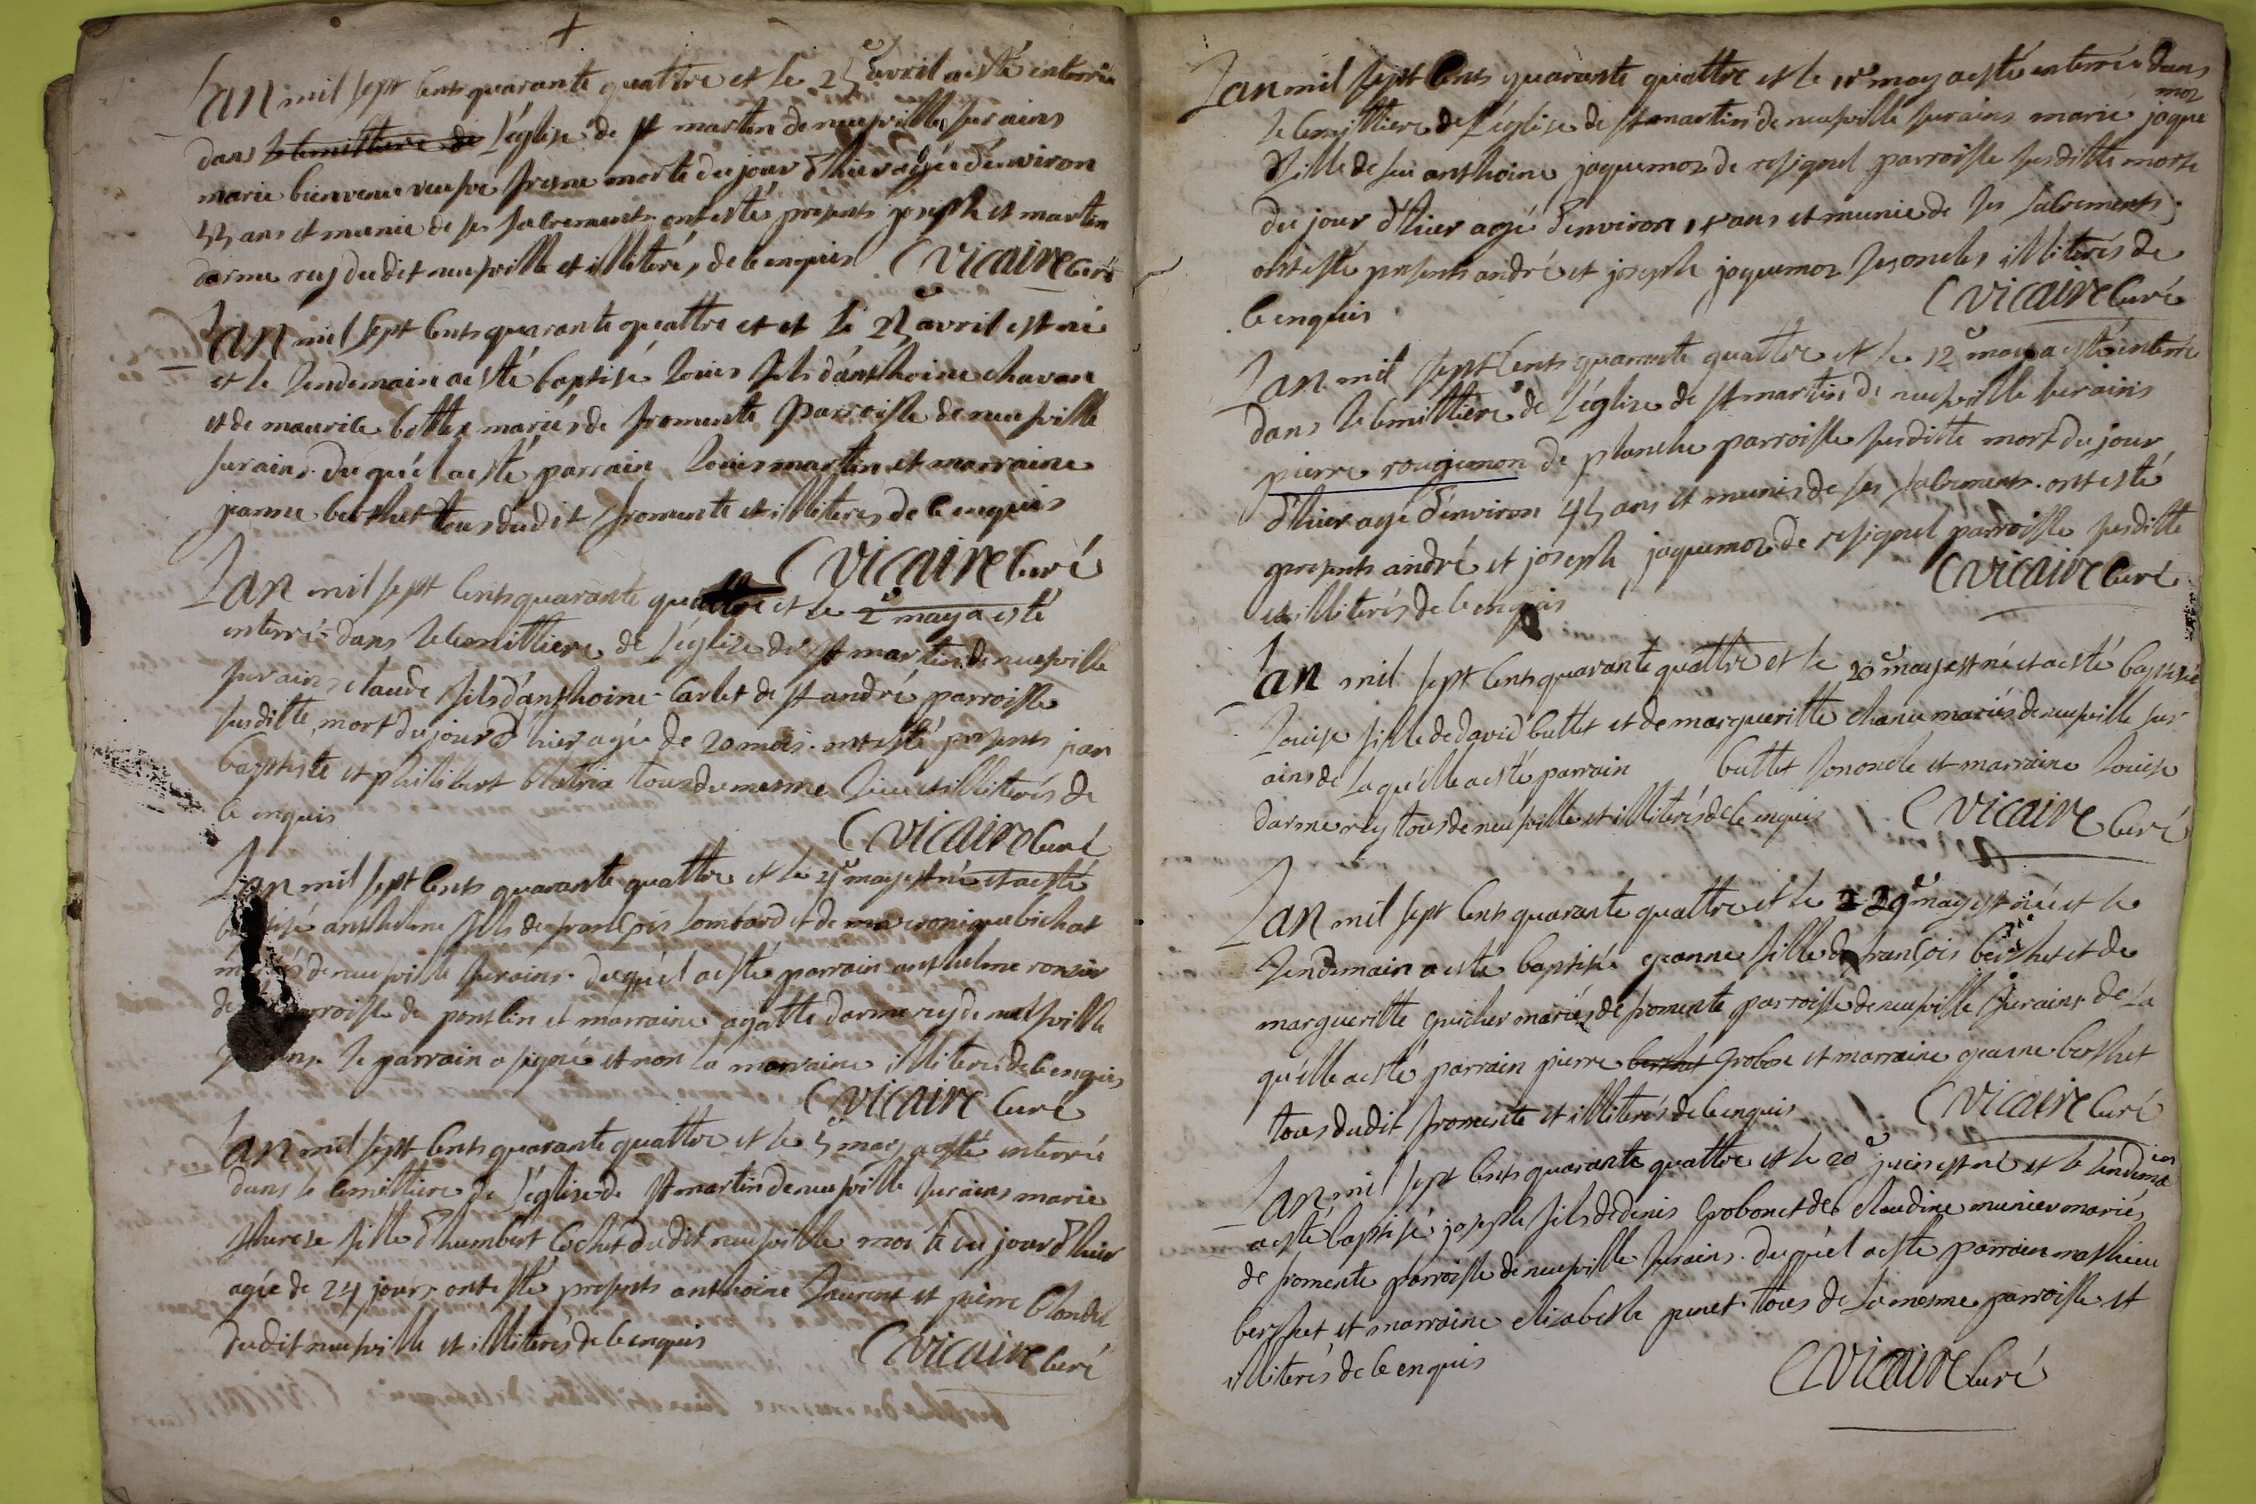 Lan mil sept cents quarante quattre et le 25e avril a esté enterrée
dans le cemittiere de l'église de st martin de neufville sur ains
marie bienvenu veufve fresne morte du jour d'hier agée d'environ
55 ans et munie de ses sacrements ont estés presents joseph et martin
darme rey dudit neufville et illiterés de ce enquis C vicaire curé
Lan mil sept cents quarante quattre et et le 27e avril est né
et le lendemain a esté baptisé louis fils d'anthoine chavan
et de maurice bottex mariés de fromente parroisse de neufville
sur ains duquel a esté parrain louis martin et marraine
jeanne berthet tous dudit fromente et illiterés de ce enquis
C vicaire curé
Lan mil sept cents quarante quattre et le 2e may a esté
enterré dans le cemittiere de l'église de st martin de neufville
sur ains claude fils d'anthoine carlet de st andré parroisse
susditte mort du jour d'hier agé de 20 mois ont esté presents jean
baptiste et philibert blatria tous du mesme lieu et illiterés de
ce enquis C vicaire curé
Lan mil sept cents quarante quattre et le may est né et a esté
baptisé anthelme fils de francois lombard et de veronique bichat
mariés de neufville sur ains duquel a esté parrain anthelme
de parroisse de ponslin et marraine agatte darme rey de neufville
sur ains le parrain a signé et non la marraine illiterée de ce enquis
C vicaire curé
Lan mil sept cents quarante quattre et le 5e may a esté enterrée
dans le cemittiere de l'église de st martin de neufville sur ains marie
therese fille d'humbert cochet dudit neufville morte du jour d'hier
agée de 24 jours ont esté presents anthoine laurent et pierre blondel
dudit neufville et illiterés de ce enquis C vicaire curé
Lan mil sept cents quarante quattre et le 11e may a esté enterrée dans
le cemittiere de l'église de st martin de neufville sur ains marie jaque
moz
fille de feu anthoine jaquemoz de resignel parroisse susditte morte
du jour d'hier agé d'environ ans et munie de ses sacrements
ont esté presents andré et joseph jaquemoz ses oncles illiterés de
ce enquis C vicaire curé
Lan mil sept cents quarante quattre et le 12e may a esté enterré
dans le cemittiere de l'église de st martin de neufville sur ains
pierre rougemon de planche parroisse susditte mort du jour
d'hier agé d'environ 45 ans et munis de ses sacrements ont esté
presents andré et joseph jaquemoz de resignel parroisse susditte
et illiterés de ce enquis C vicaire curé
Lan mil sept cents quarante quattre et le 20e may est né et a esté baptisée
Louise fille de david buttet et de margueritte chanu mariés de neufville sur
ains de laquelle a esté parrain buttet son oncle et marraine louise
darme rey tous de neufville et illiterés de ce enquis C vicaire curé
Lan mil sept cents quarante quattre et le 29e may est née et le
lendemain a esté baptisée jeanne fille de francois berthet et de
margueritte guicher mariés de fromente parroisse de neufville sur ains de la
quelle a esté parrain pierre berthet grobon et marraine jeanne berthet
tous dudit fromente et illiterés de ce enquis C vicaire curé
Lan mil sept cents quarante quattre et le 20e juin est né et le lendemain
a esté baptisé joseph fils de denis grobon et de claudine munier mariés
de fromente parroisse de neufville sur ains duquel a esté parrain mathieu
berthet et marraine elizabeth penet tous de la mesme parroisse et
illiterés de ce enquis C vicaire curé